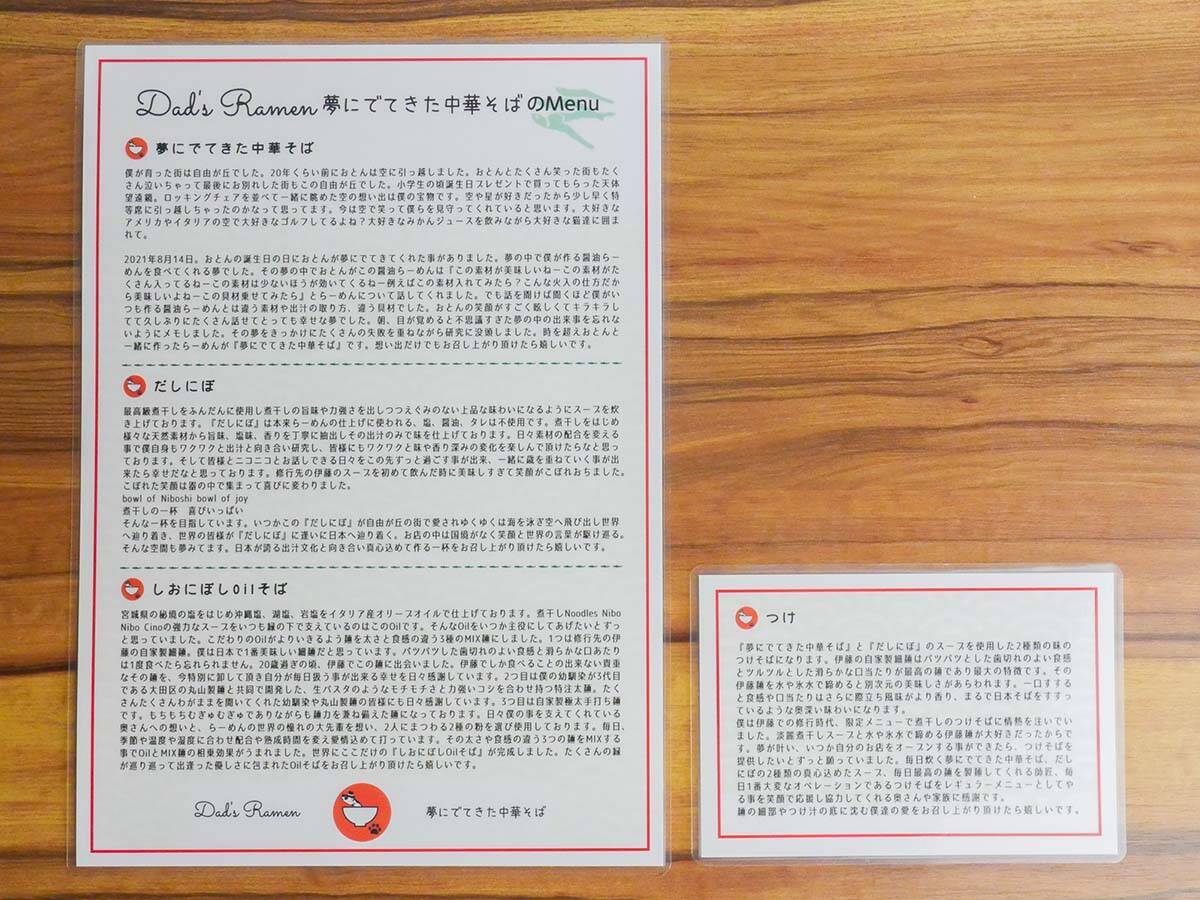 Dad's Ramen 夢にでてきた中華そばのMenu
夢にでてきた中華そば
僕が育った街は自由が丘でした。20年くらい前におとんは空に引っ越しました。おとんとたくさん笑った街もたく
さん泣いちゃって最後にお別れした街もこの自由が丘でした。小学生の頃誕生日プレゼントで買ってもらった天体
望遠鏡。ロッキングチェアを並べて一緒に眺めた空の想い出は僕の宝物です。空や星が好きだったから少し早く特
等席に引っ越しちゃったのかなって思ってます。今は空で笑って僕らを見守ってくれていると思います。大好きな
アメリカやイタリアの空で大好きなゴルフしてるよね？大好きなみかんジュースを飲みながら大好きな猫達に囲ま
れて。
2021年8月14日。おとんの誕生日の日におとんが夢にでてきてくれた事がありました。夢の中で僕が作る醤油らー
めんを食べてくれる夢でした。その夢の中でおとんがこの醤油らーめんは『この素材が美味しいねーこの素材がた
くさん入ってるねーこの素材は少ないほうが効いてくるねー例えばこの素材入れてみたら？こんな火入の仕方だか
ら美味しいよねーこの具材乗せてみたら』とらーめんについて話してくれました。でも話を聞けば聞くほど僕がい
つも作る醤油らーめんとは違う素材や出汁の取り方、違う具材でした。おとんの笑顔がすごく眩しくてキラキラし
てて久しぶりにたくさん話せてとっても幸せな夢でした。朝、目が覚めると不思議すぎた夢の中の出来事を忘れな
いようにメモしました。その夢をきっかけにたくさんの失敗を重ねながら研究に没頭しました。時を超えおとんと
一緒に作ったらーめんが『夢にでてきた中華そば』です。想い出だけでもお召し上がり頂けたら嬉しいです。
だしにぼ
最高級煮干しをふんだんに使用し煮干しの旨味や力強さを出しつつえぐみのない上品な味わいになるようにスープを炊
き上げております。『だしにぼ』は本来らーめんの仕上げに使われる、塩、醤油、タレは不使用です。煮干しをはじめ
様々な天然素材から旨味、塩味、香りを丁寧に抽出しその出汁のみで味を仕上げております。日々素材の配合を変える
事で僕自身もワクワクと出汁と向き合い研究し、皆様にもワクワクと味や香り深みの変化を楽しんで頂けたらなと思っ
ております。そして皆様とニコニコとお話しできる日々をこの先ずっと過ごす事が出来、一緒に歳を重ねていく事が出
来たら幸せだなと思っております。修行先の伊藤のスープを初めて飲んだ時に美味しすぎて笑顔がこぼれおちました。
こぼれた笑顔は器の中で集まって喜びに変わりました。
bowl of Niboshi bowl of joy
煮干しの一杯 喜びいっぱい
そんな一杯を目指しています。いつかこの『だしにぼ』が自由が丘の街で愛されゆくゆくは海を泳ぎ空へ飛び出し世界
へ辿り着き、世界の皆様が『だしにぼ』に逢いに日本へ辿り着く。お店の中は国境がなく笑顔と世界の言葉が駆け巡る。
そんな空間も夢みてます。日本が誇る出汁文化と向き合い真心込めて作る一杯をお召し上がり頂けたら嬉しいです。
しおにぼしOilそば
宮城県の秘境の塩をはじめ沖縄塩、湖塩、岩塩をイタリア産オリーブオイルで仕上げております。煮干しNoodles Nibo
Nibo Cinoの強力なスープをいつも縁の下で支えているのはこのOilです。そんなOilをいつか主役にしてあげたいとずっ
と思っていました。こだわりのOilがよりいきるよう麺を太さと食感の違う3種のMIX麺にしました。1つは修行先の伊
藤の自家製細麺。僕は日本で1番美味しい細麺だと思っています。パツパツした歯切れのよい食感と滑らかな口あたり
は1度食べたら忘れられません。20歳過ぎの頃、伊藤でこの麺に出会いました。伊藤でしか食べることの出来ない貴重
なその麺を、今特別に卸して頂き自分が毎日扱う事が出来る幸せを日々感謝しています。2つ目は僕の幼馴染が3代目
である大田区の丸山製麺と共同で開発した、生パスタのようなモチモチさと力強いコシを合わせ持つ特注太麺。たく
さんたくさんわがままを聞いてくれた幼馴染や丸山製麺の皆様にも日々感謝しています。3つ目は自家製極太手打ち麺
です。もちもちむぎゅむぎゅでありながらも麺力を兼ね備えた麺になっております。日々僕の事を支えてくれている
奥さんへの想いと、らーめんの世界の憧れの大先輩を想い、2人にまつわる2種の粉を選び使用しております。毎日、
季節や温度や湿度に合わせ配合や熟成時間を変え愛情込めて打っています。その太さや食感の違う3つの麺をMIXする
事でOilとMIX麺の相乗効果がうまれました。世界にここだけの『しおにぼしOilそば』が完成しました。たくさんの縁
が巡り巡って出逢った優しさに包まれたOilそばをお召し上がり頂けたら嬉しいです。
Dad's Ramen 夢にでてきた中華そば
つけ
『夢にでてきた中華そば』と『だしにぼ』のスープを使用した2種類の味の
つけそばになります。伊藤の自家製細麺はパツパツとした歯切れのよい食感
とツルツルとした滑らかな口当たりが最高の麺であり最大の特徴です。その
伊藤麺を水や氷水で締めると別次元の美味しさがあらわれます。一口すする
と食感や口当たりはさらに際立ち風味がより香り、まるで日本そばをすすっ
ているような奥深い味わいになります。
僕は伊藤での修行時代、限定メニューで煮干しのつけそばに情熱を注いでい
ました。淡麗煮干しスープと水や氷水で締める伊藤麺が大好きだったからで
す。夢が叶い、いつか自分のお店をオープンする事ができたら、つけそばを
提供したいとずっと願っていました。毎日炊く夢にでてきた中華そば、だし
にぼの2種類の真心込めたスープ、毎日最高の麺を製麺してくれる師匠、毎
日1番大変なオペレーションであるつけそばをレギュラーメニューとしてや
る事を笑顔で応援し協力してくれる奥さんや家族に感謝です。
麺の細部やつけ汁の底に沈む僕達の愛をお召し上がり頂けたら嬉しいです。